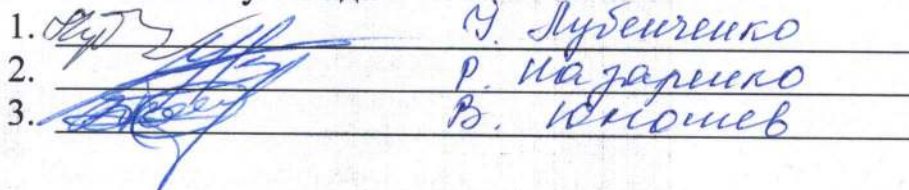 1. У. Лубенченко
2. Р. Назаренко
3. В. Юношев